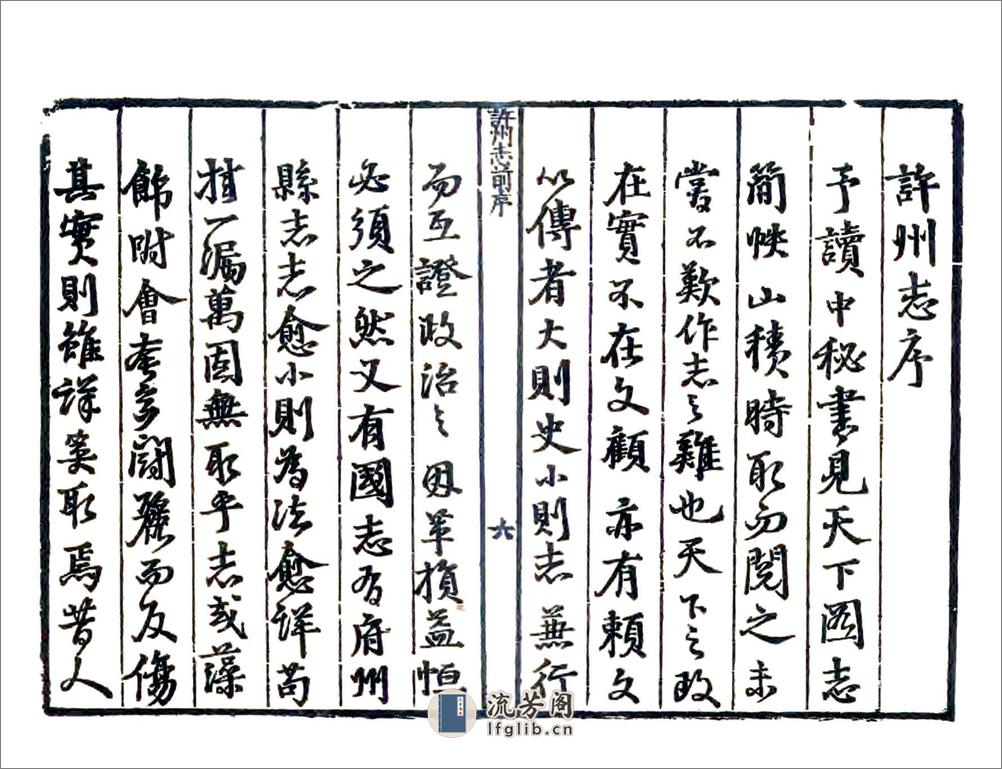 許州志序
予讀中秘書見天下圖志
簡帙山積時取而閱之未
嘗不歎作志之難也天下之政
在實不在文顧亦有賴文
以傳者大則史小則志兼行
許州志前序
六
而互證政治之因革損益恒
必須之然又有國志有府州
縣志志愈小則為法愈詳苟
掛一漏萬固無取乎志或藻
餙附會夸多鬪麗而反傷
其實則雖詳奚取焉昔人
流芳阁
lfglib.cn